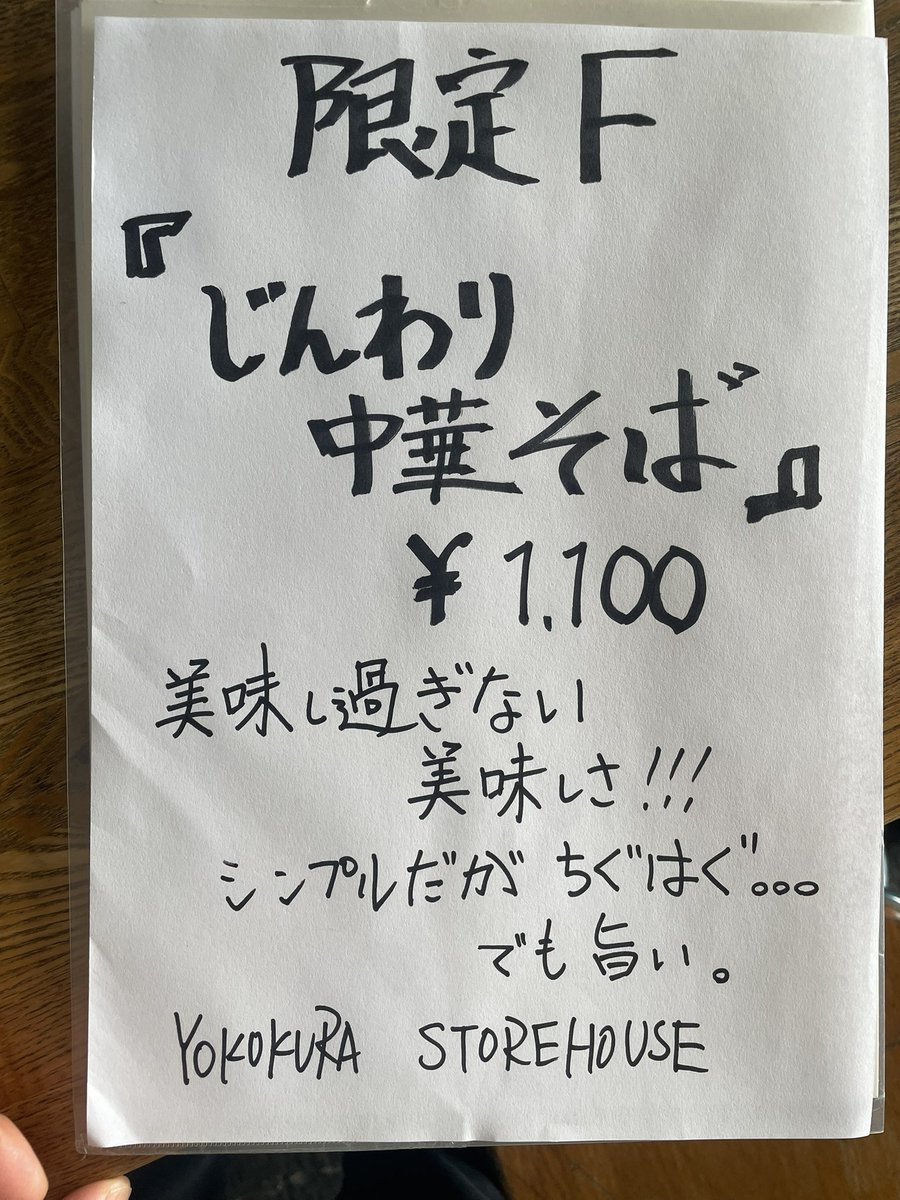 限定F
『じんわり
中華そば』
¥1,100
美味し過ぎない
美味しさ!!!
シンプルだが ちぐはぐ。。。
でも旨い。
YOKOKURA STOREHOUSE